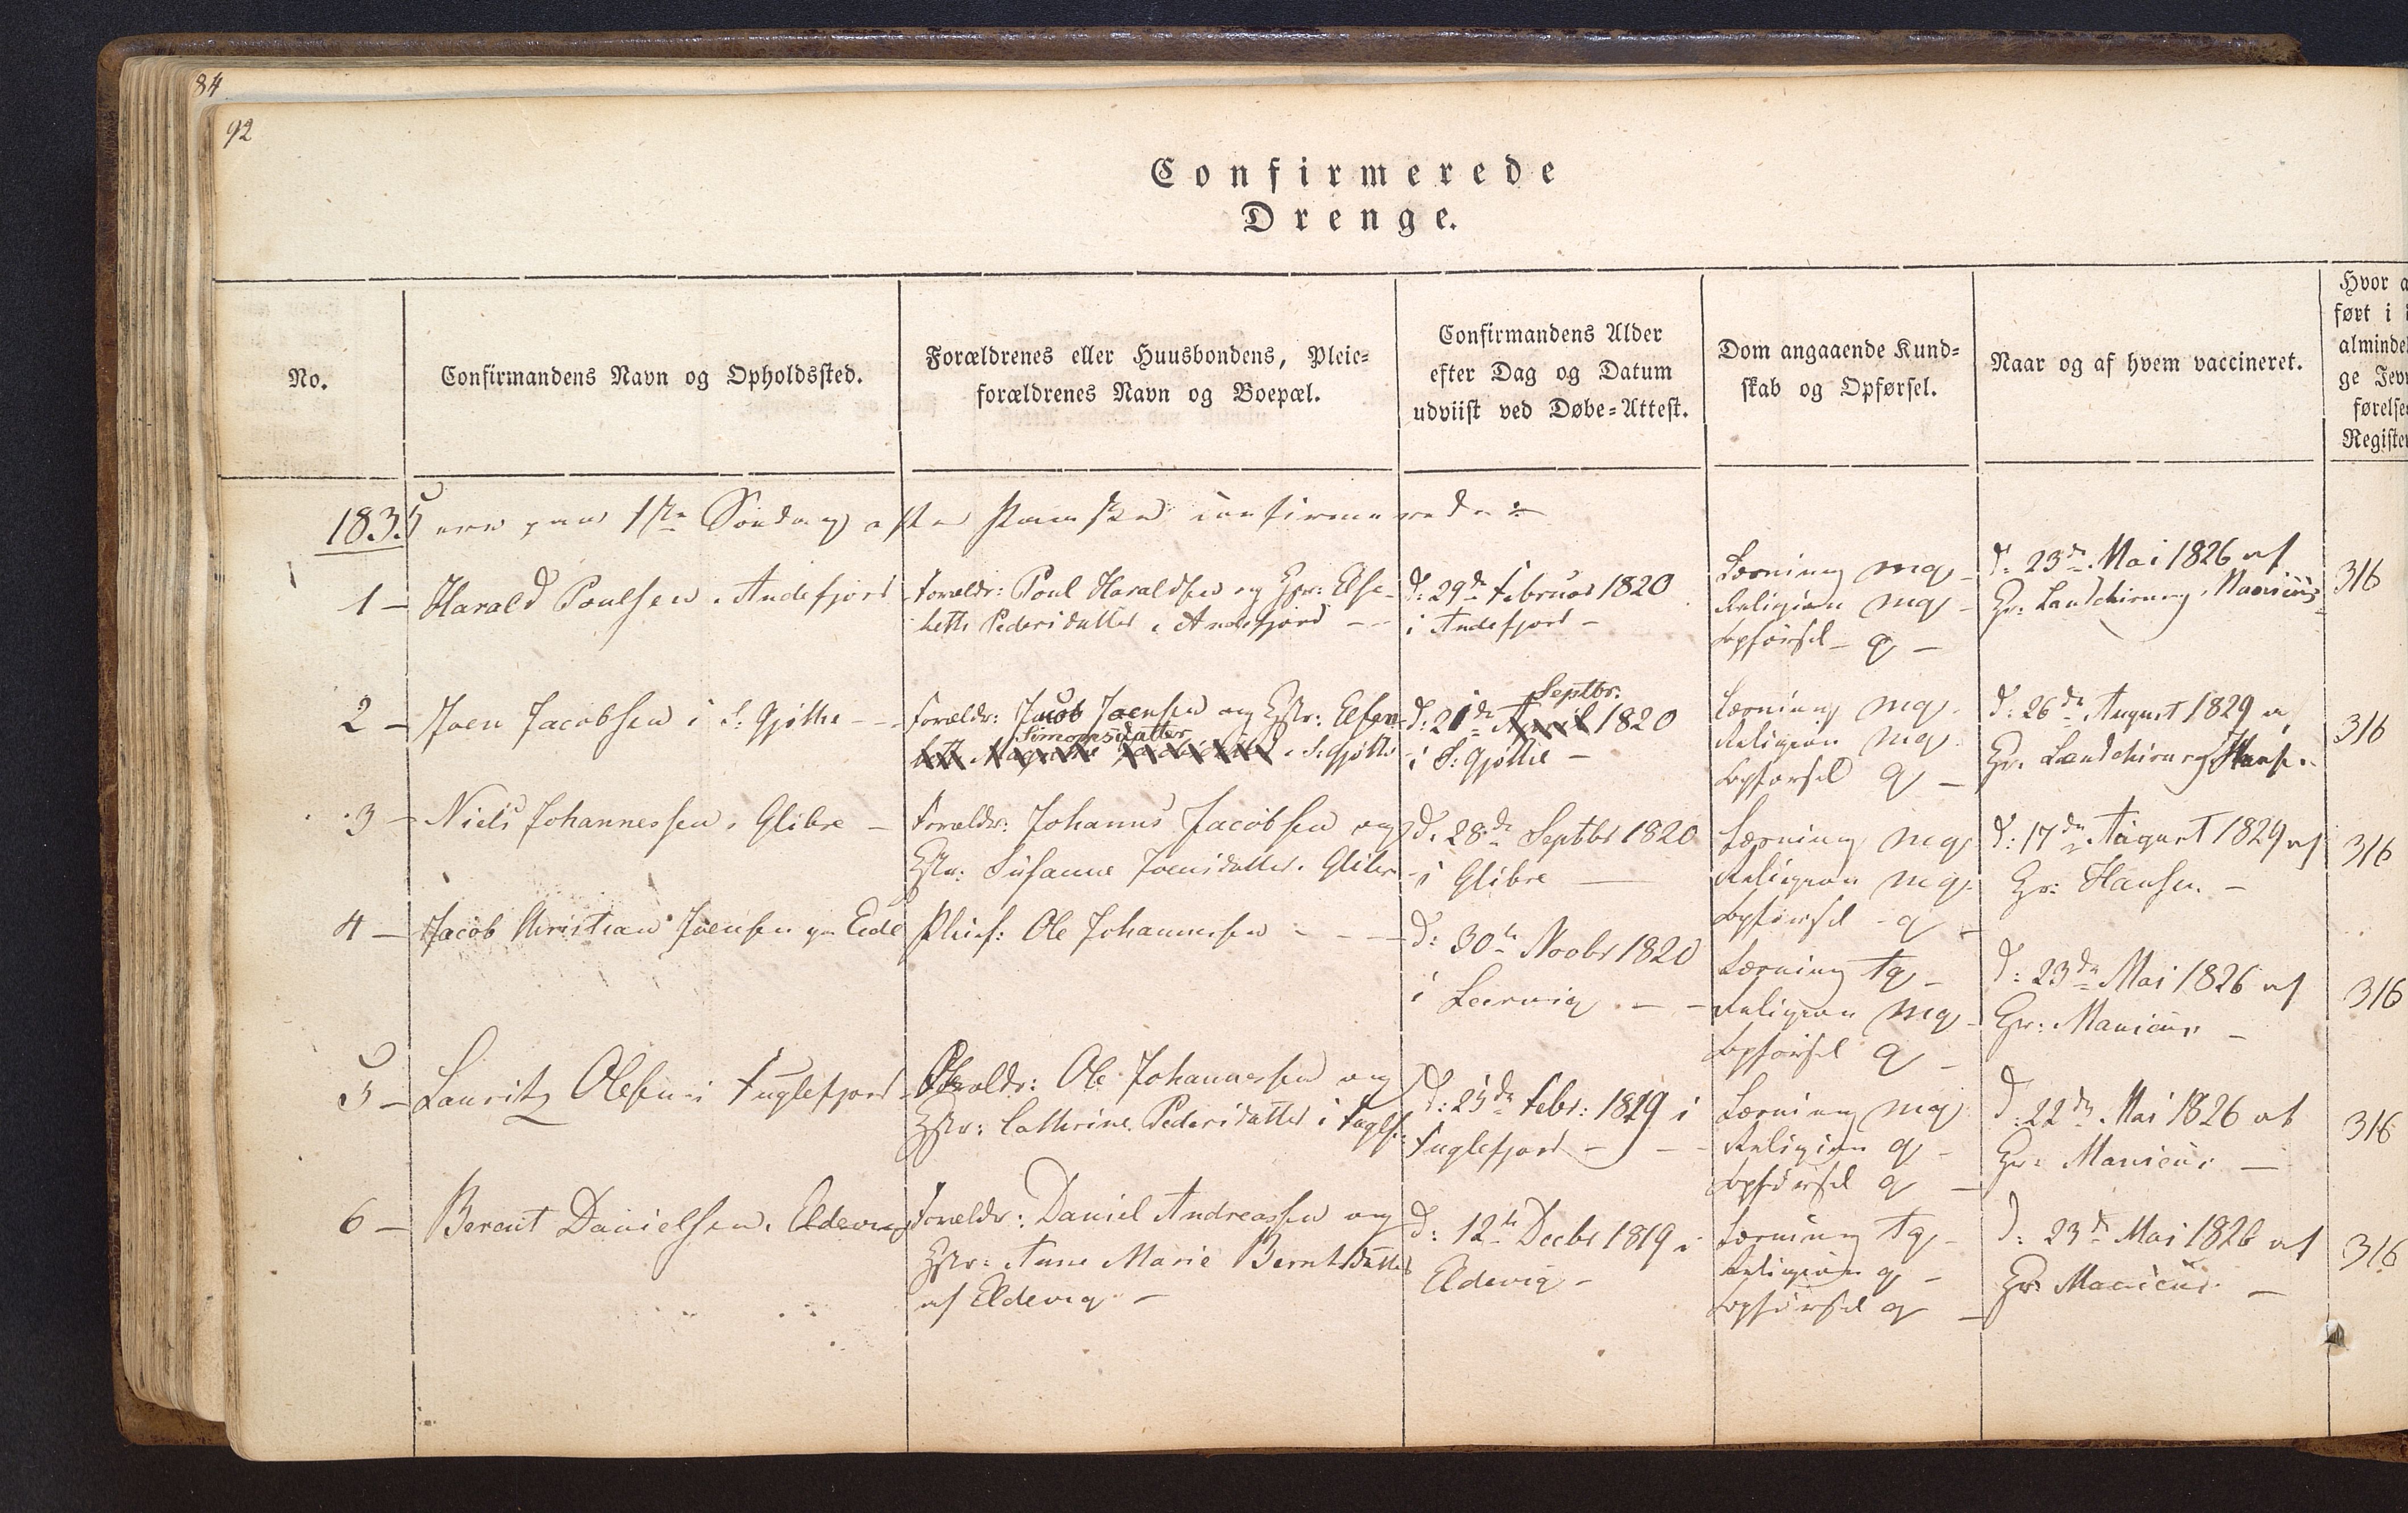 84
92
Confirmerede
Drenge.
No.
Confirmandens Navn og Opholdssted.
Forældrenes eller Huusbondens, Pleie=
forældrenes Navn og Boepæl.
Confirmandens Alder
efter Dag og Datum
udviist ved Døbe=Attest.
Dom angaaende Kund=
skab og Opførsel.
Naar og af hvem vaccineret.
Hvor a
ført i
alminde
ge Jev
førelse
Register
1835 ere paa 1ste Søndag efter Paaske confirmerede:
1 - Harald Poulsen i Andefjord
Forældr: Poul Haraldsen og Hstr: Else-
beth Pedersdatter i Andefjord
d: 29de Februar 1820
i Andefjord -
Læsning mg -
Religion mg -
Opførsel - g -
d: 23de Mai 1826 af
Hr: Landchirurg Manicus
316
2 - Joen Jacobsen i S: Gjøthe
Forældr: Jacob Joensen og Hstr: Elsen
Simonsdatter i S: Gjøthe
Septbr:
d: 21de April 1820
i S: Gjøthe -
Læsning mg.
Religion mg.
Opførsel g -
d: 26de August 1829 a
Hr. Landchirurg Hans.
316
3 - Niels Johannessen i Glibre -
Forældr: Johannes Jacobsen og
Hstr: Susanne Joensdatter i Glibre
d. 28de Septbr 1820
i Glibre
Læsning mg
Religion mg.
Opførsel - g -
d: 17de August 1829 af
Hr: Hansen. -
316
4 - Jacob Christian Joensen paa Eide
Pleief: Ole Johannessen
d: 30te Novbr 1820
i Leervig.
Læsning tg -
Religion mg -
Opførsel g -
d: 23de Mai 1826 af
Hr: Manicus -
316
5 - Lauritz Olesen i Fuglefjord
Forældr: Ole Johannessen og
Hstr: Cathrine Pedersdatter i Fuglf:
d: 25de Febr: 1819 i
Fuglefjord -
Læsning mg
Religion g -
Opførsel g -
d: 22de Mai 1826 af
Hr: Manicus -
316
6 - Berent Danielsen i Eldevig
Forældr: Daniel Andreassen og
Hstr: Anne Marie Berntsdatter
af Eldevig -
d: 12te Decbr 1819 i
Eldevig -
Læsning tg -
Religion g -
Opførsel g -
d: 23de Mai 1826 af
Hr: Manicus. -
316